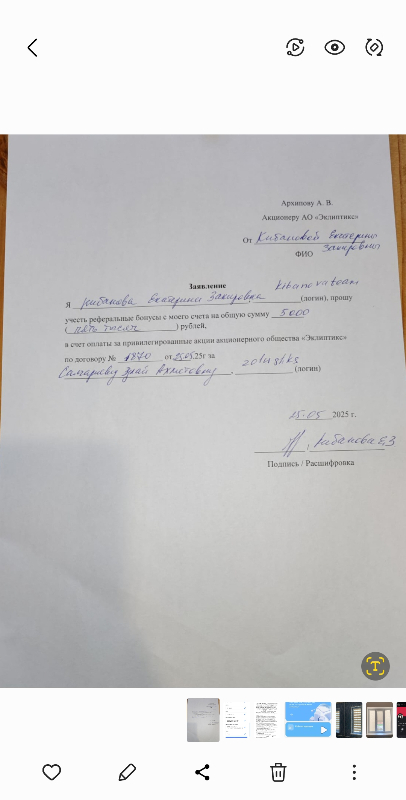 Архипову А. В.
Акционеру АО «Эклиптикс»
От Кибановой Екатерины
Закировны
ФИО
Заявление
kibanovateam
Я Кибанова Екатерина Закировна (логин), прошу
учесть реферальные бонусы с моего счета на общую сумму 5000
(пять тысяч) рублей,
в счет оплаты за привилегированные акции акционерного общества «Эклиптикс»
по договору № 1870 от 25.05.25г за
(логин)
25.05 2025 г.
Кибанова Е.З
Подпись / Расшифровка